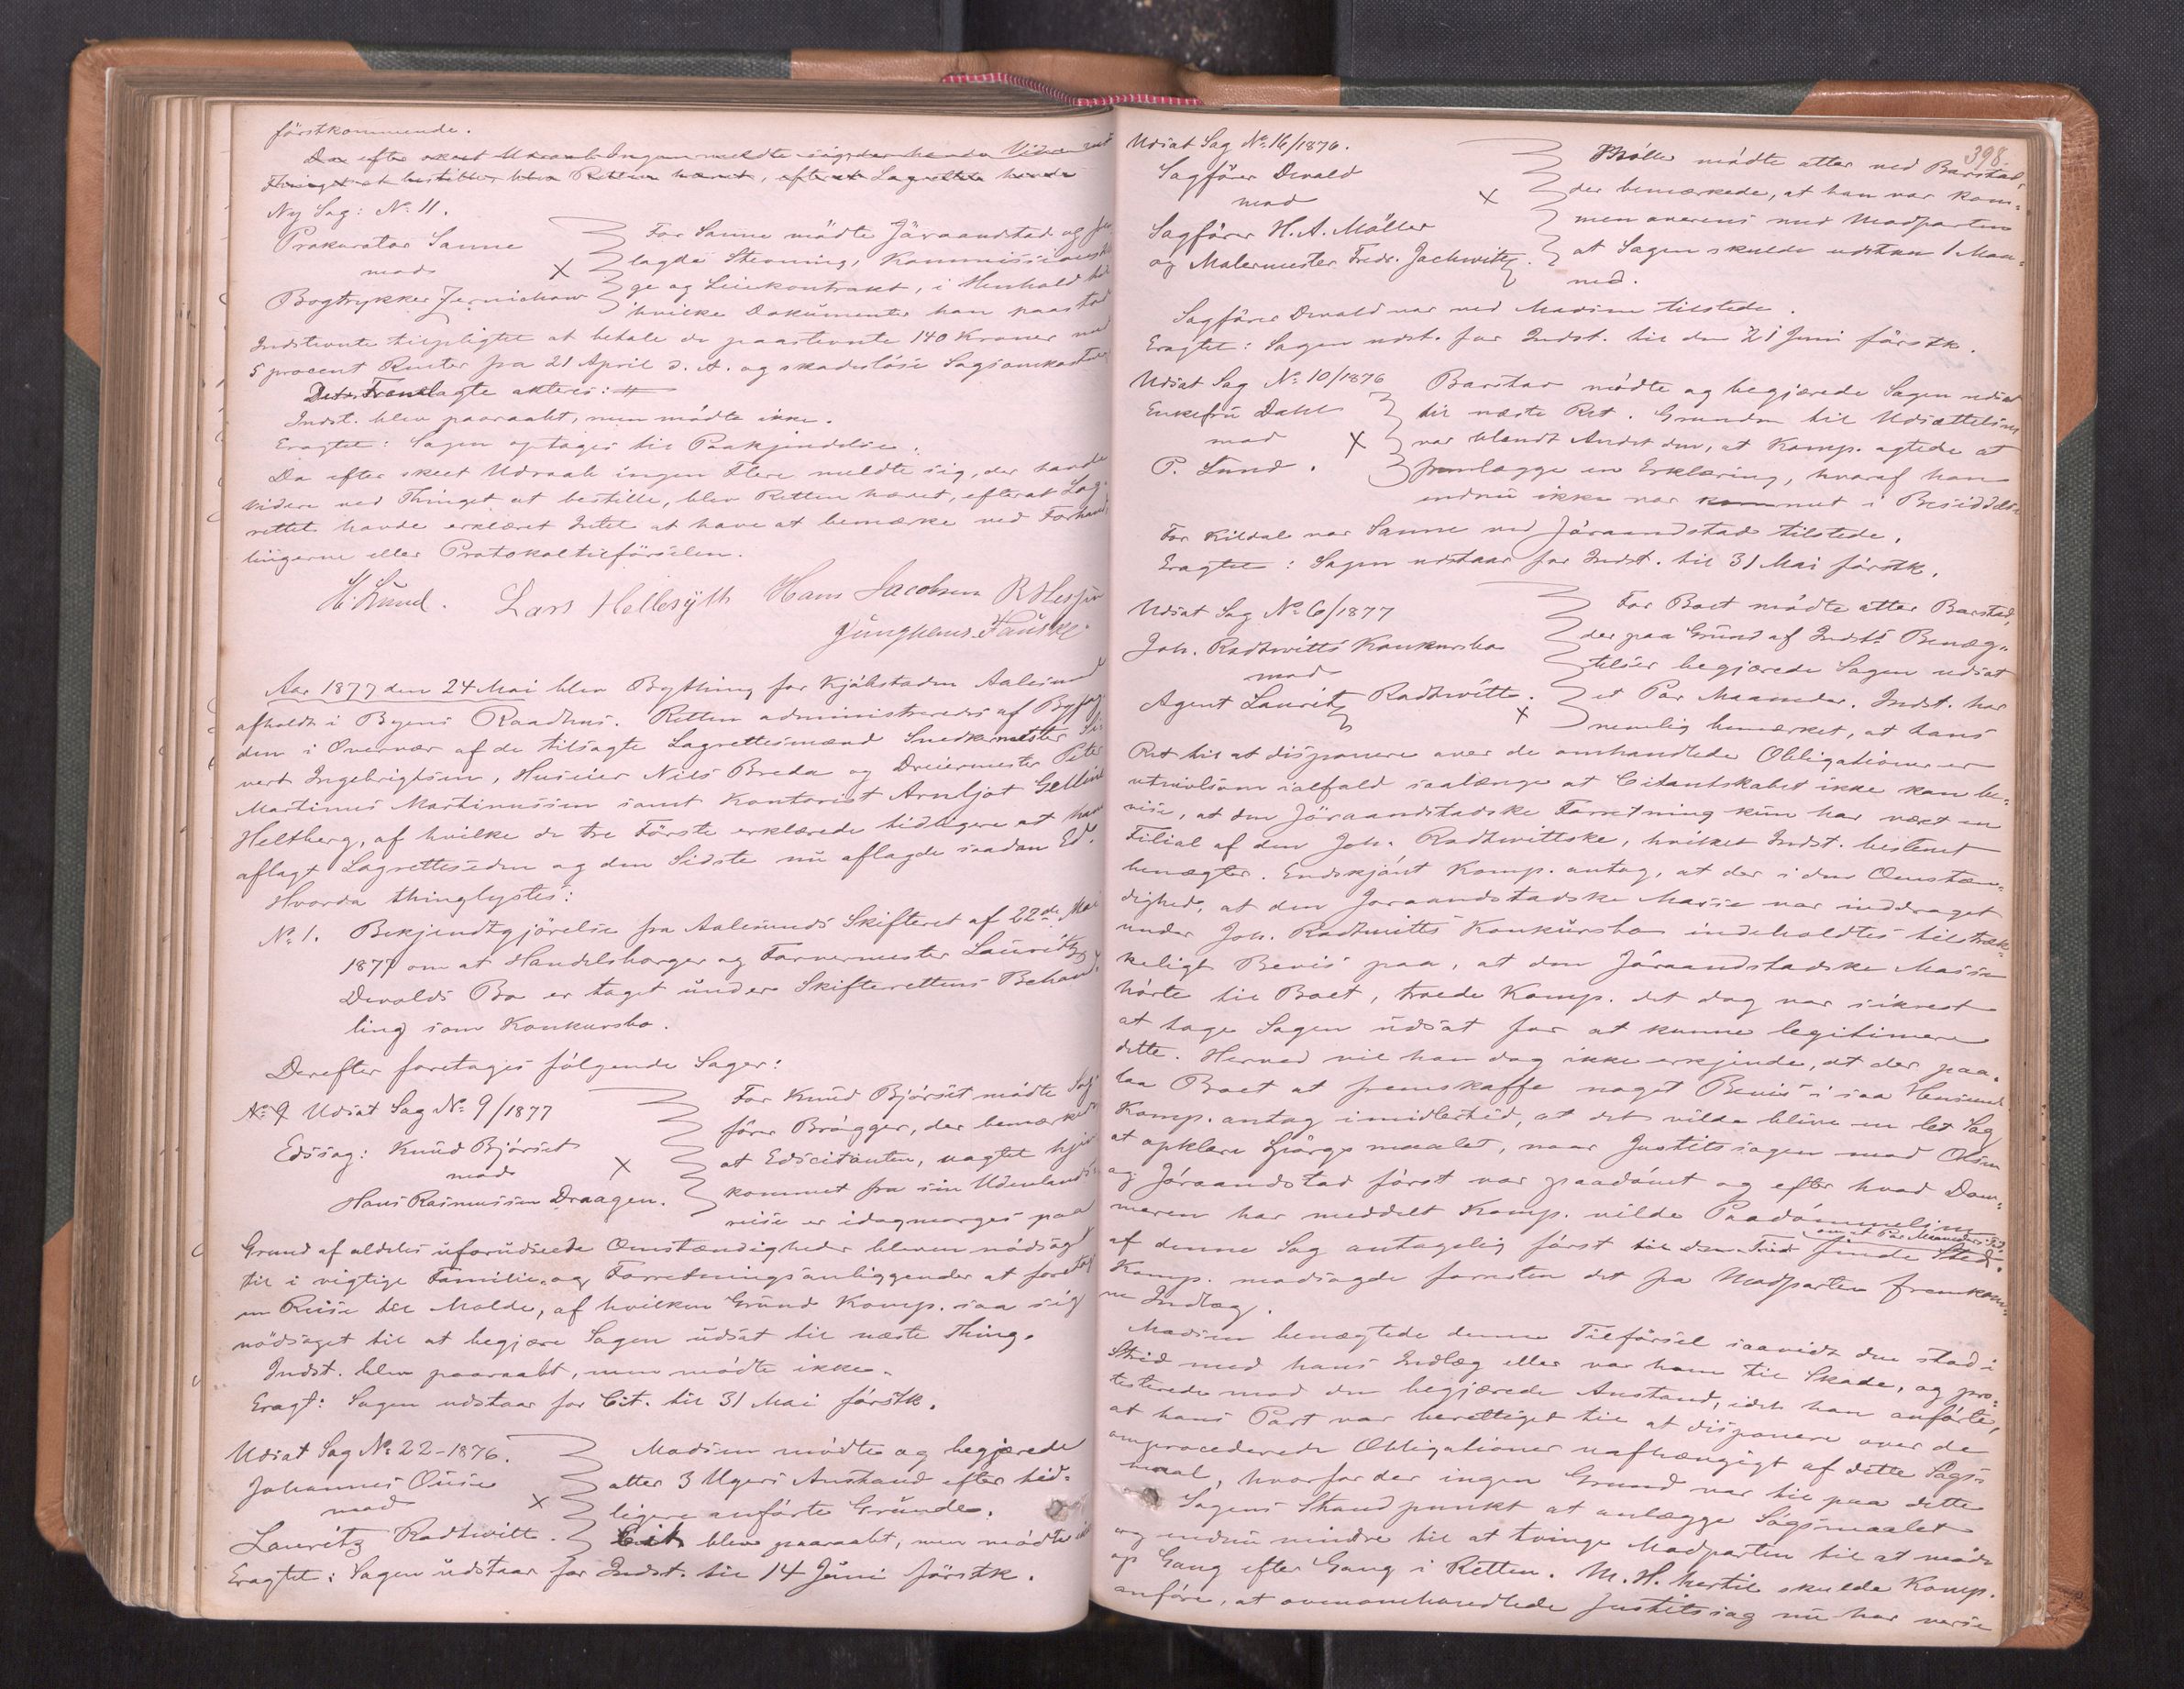 förstkommende.
Da efter skeet Udraab Ingen meldte sig, der havde Videre ved
Thinget at bestille, blev Retten hævet, efterat Lagrettet havde
Ny Sag: No 11.
Prokurator Sanne
mod
Bogtrykker Jernichow
For Sanne mødte Jöraandstad og frem
lagde Stevning, Kommissionskla
ge og Leiekontrakt, i Henhold til
hvilke Dokumenter han paastod
Indstevnte tilpligtet at betale de paastevnte 140 Kroner med
5 procent Renter fra 21 April d. A. og skadeslöse Sagsomkostninger
Det Fremlagte akteres: #
Indst. blev paaraabt, men mödte ikke.
Eragtet: Sagen optages til Paakjendelse.
Da efter skeet Udraab ingen Flere meldte sig, der havde
Videre ved Thinget at bestille, blev Retten hævet, efterat Lag-
rettet havde erklæret Intet at have at bemærke ved Forhand-
lingerne eller Protokoltilförselen.
H. Lund. Lars Hellesylt Hans Jacobsen
Aar 1877 den 24 Mai blev Bything for Kjöbstaden Aalesund
afholdt i Byens Raadhus. Retten administreredes af Byfog
den i Overvær af de tilsagte Lagrettesmænd Snedkermester Si
vert Ingebrigtsen, Huseier Nils Breda og Dreiermester Peter
Martinus Martinussen samt Kontorist Arnljot Gelline
Heltberg, af hvilke de tre Förste erklærede tidligere at have
aflagt Lagretteseden og den Sidste nu aflagde saadan Ed.
Hvorda thinglystes:
No 1. Bekjendtgjörelse fra Aalesunds Skifteret af 22de Mai
1877 om at Handelsborger og Farvermester Lauritz
Devolds Bo er taget under Skifterettens Behand-
ling som Konkursbo.
Derefter foretages fölgende Sager:
No 9 Udsat Sag No 9/1877
Edssag: Knud Björset
mod
Hans Rasmussen Draagen.
For Knud Björset mödte Sag
förer Brögger, der bemærkede
at Edscitanten, uagtet hjem
kommet fra sin Udenlands-
reise er idagmorges paa
Grund af aldeles uforudseede Omstændigheder bleven nödsaget
til i vigtige Familie- og Forretningsanliggender at foretage
en Reise til Molde, af hvilken Grund Komp. saa sig
nödsaget til at begjære Sagen udsat til næste Thing.
Indst. blev paaraabt, men mödte ikke.
Eragt: Sagen udstaar for Cit. til 31 Mai förstk.
Udsat Sag No 22-1876.
Johannes Olsen
mod
Lauritz Radtwitt.
Madsen mödte og begjærede
atter 3 Ugers Anstand efter tid-
ligere anförte Grunde.
Cit. blev paaraabt, men mödte ikke
Eragtet: Sagen udstaar for Indst. til 14 Juni förstk.
398.
Udsat Sag No 16/1876.
Sagförer Devold
mod
Sagförer H. A. Möller
og Malermester Fredr. Jachwitz.
Möller mödte atter ved Barstad,
der bemærkede, at han var kom-
men overens med Modparten
at Sagen skulde udstaa 1 Maa-
ned.
Sagförer Devold var ved Madsen tilstede.
Eragtet: Sagen udst. for Indst. til den 21 Juni förstk.
Udsat Sag No 10/1876
Enkefru Dahl
mod
P. Lund.
Barstad mödte og begjærede Sagen udsat
til næste Ret. Grunden til Udsættelsen
var blandt Andet den, at Komp. agtede at
fremlægge en Erklæring, hvoraf han
endnu ikke var kommet i Besiddelse
For Kildal var Sanne ved Jöraandstad tilstede.
Eragtet: Sagen udstaar for Indst. til 31 Mai förstk.
Udsat Sag No 6/1877
Joh. Radtwitts Konkursbo
mod
Agent Lauritz Radtwitt.
For Boet mödte atter Barstad,
der paa Grund af Indsts Benæg-
telser begjærede Sagen udsat
et Par Maaneder. Indst. har
nemlig bemærket, at hans
Ret til at disponere over de omhandlede Obligationer er
utvivlsom ialfald saalænge at Citantskabet ikke kan be-
vise, at den Jöraandstadske Forretning kun har været en
Filial af den Joh. Radtwittske, hvilket Indst. bestemt
benægter. Endskjönt Komp. antog, at der i den Omstæn-
dighed, at den Joraandstadske Masse var inddraget
under Joh. Radtwitts Konkursbo indeholdtes tilstræk-
keligt Bevis paa, at den Jöraandstadske Masse
hörte til Boet, troede Komp. det dog var sikrest
at tage Sagen udsat for at kunne legitimere
dette. Herved vil han dog ikke erkjende, at der paa-
laa Boet at fremskaffe noget Bevis i saa Henseende
Komp. antog imidlertid, at det vilde blive en let Sag
at opklare Spörgsmaalet, naar Justitssagen mod Olsen
og Jöraandstad först var paadömt og efter hvad Dom-
meren har meddelt Komp. vilde Paadömmelsen
om et Par Maaneders Tid
af denne Sag antagelig först finde Sted.
Komp. modsagde forresten det fra Modparten fremkom-
ne Indlæg.
Madsen benægtede denne Tilförsel saavidt den stod i
Strid med hans Indlæg eller var ham til Skade, og pro-
testerede mod den begjærede Anstand, idet han anförte,
at hans Part var berettiget til at disponere over de
omprocederede Obligationer uafhængigt af dette Sögs-
maal, hvorfor der ingen Grund var til paa dette
Sagens Standpunkt at anlægge Sögsmaalet
og endnu mindre til at tvinge Modparten til at möde
op Gang efter Gang i Retten. M. H. hertil skulde Komp.
anföre, at ovenomhandlede Justitssag nu har versе